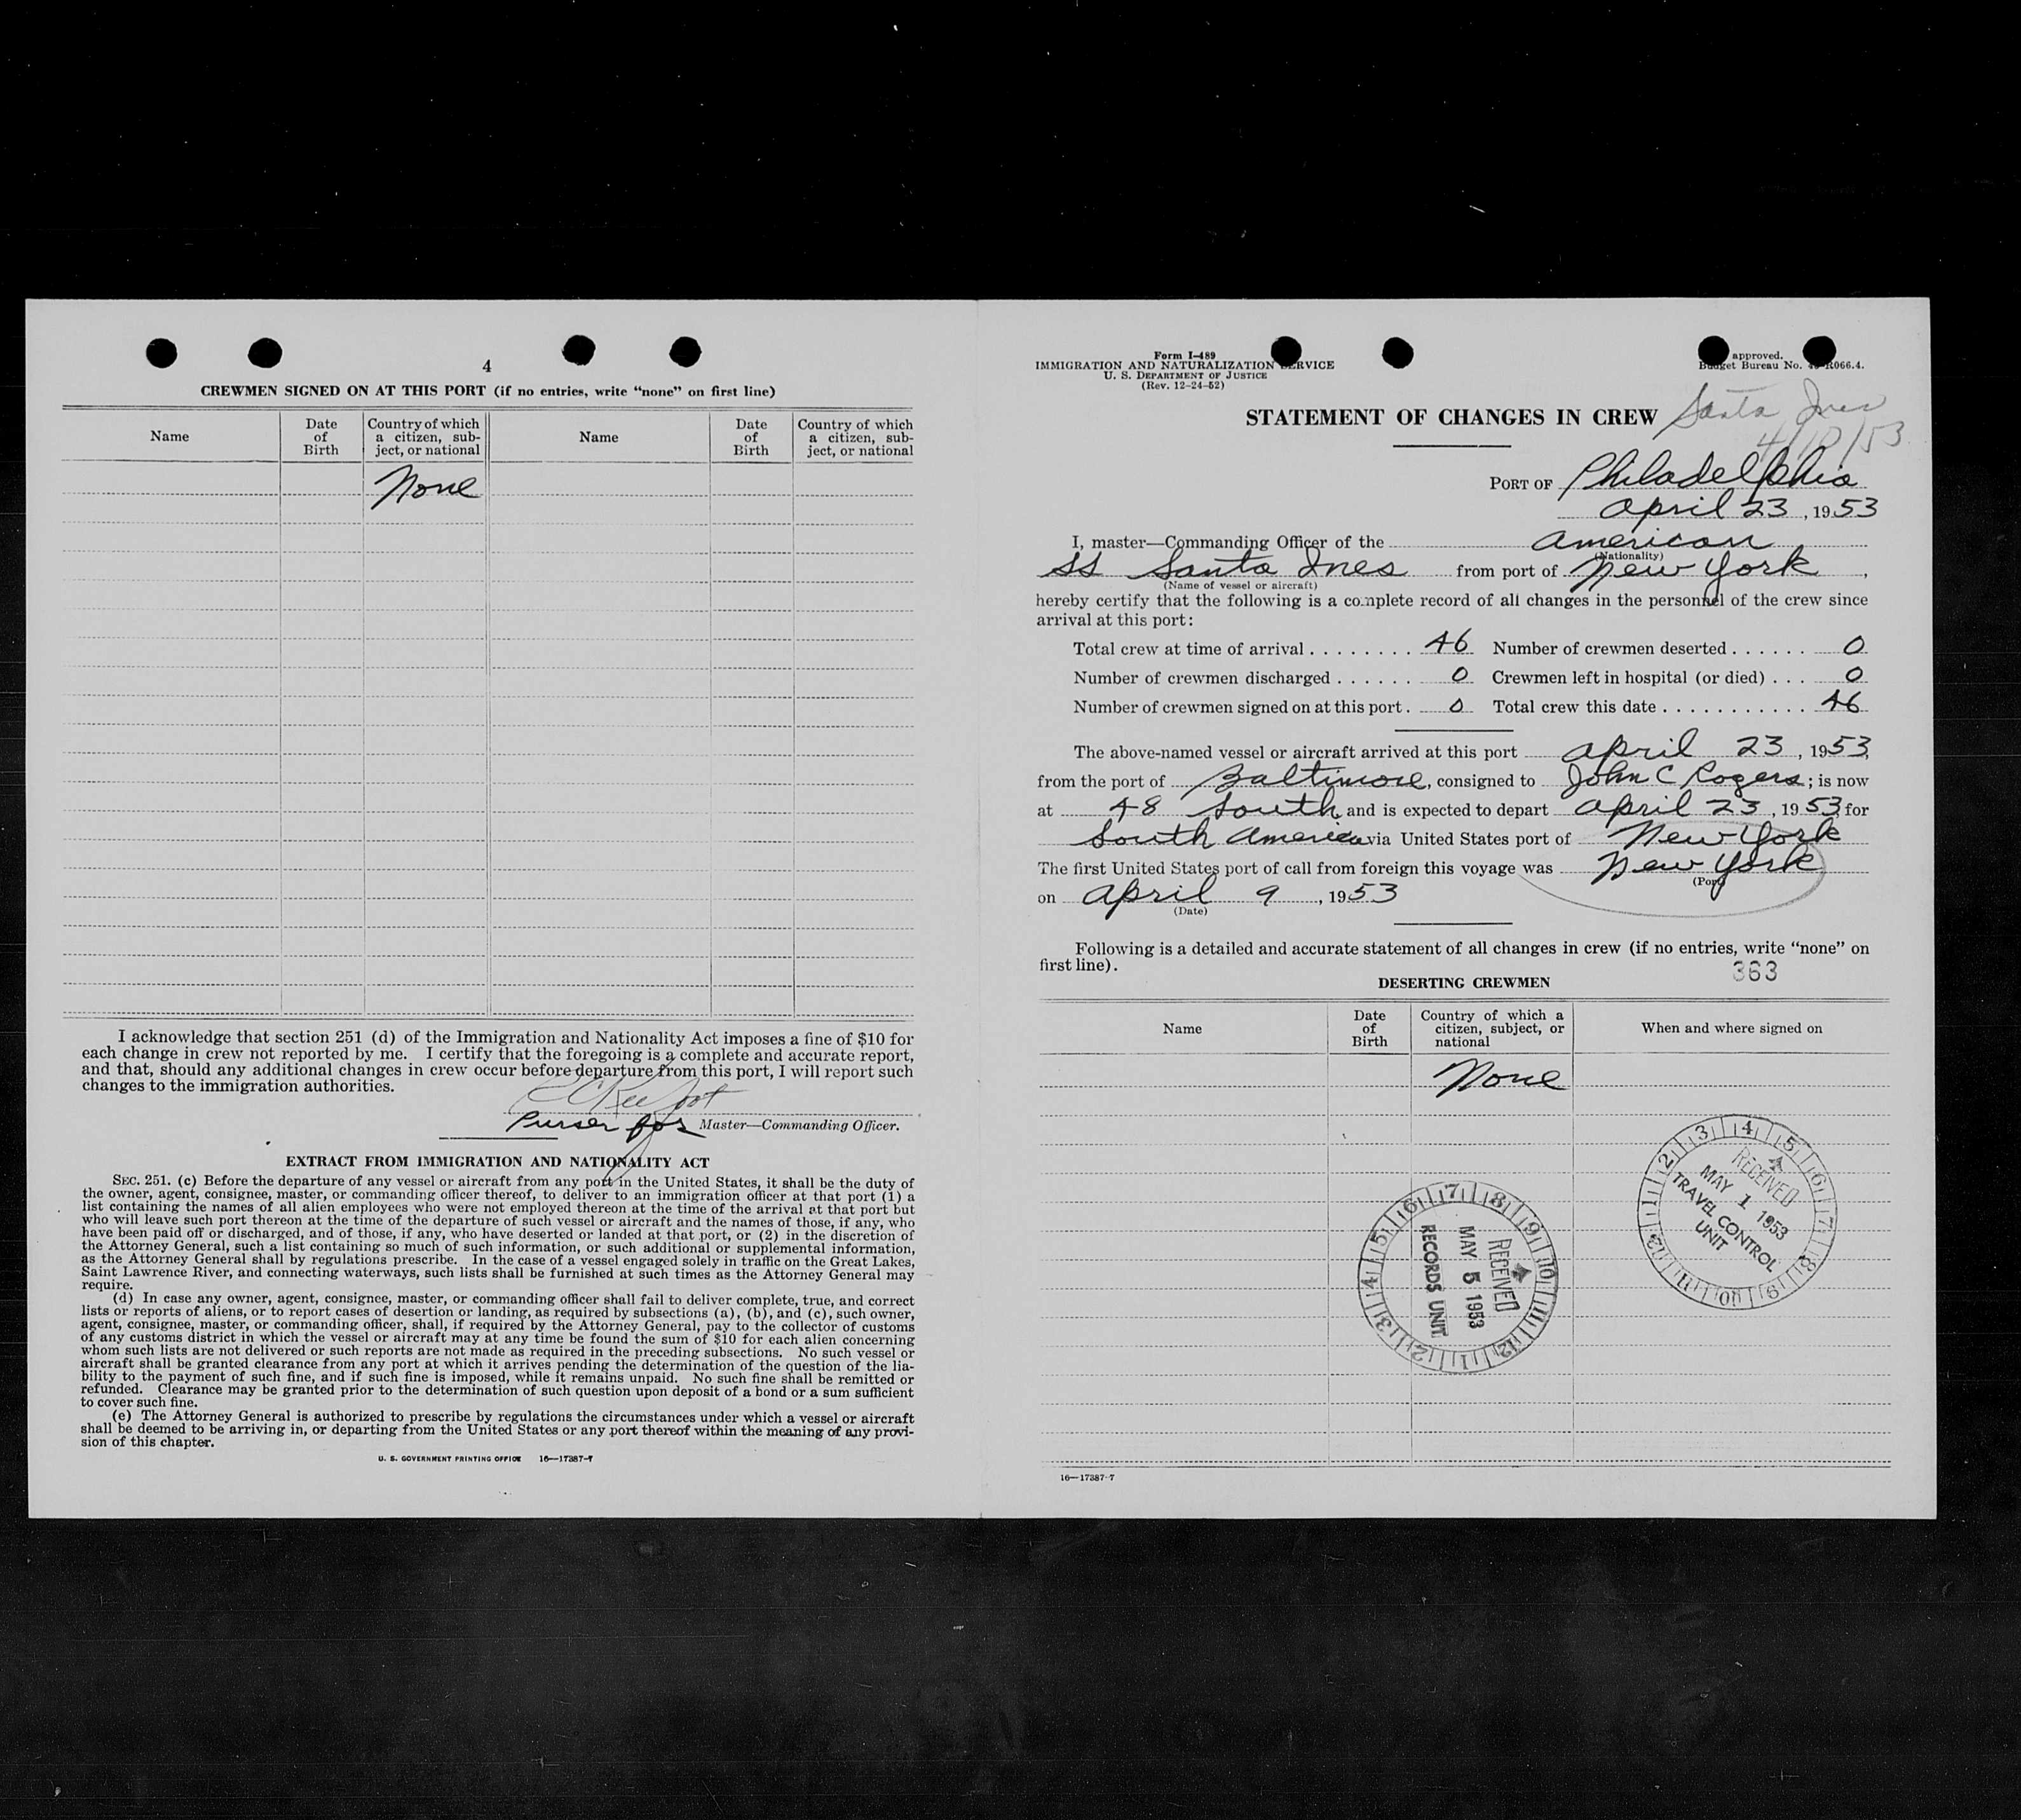 4
CREWMEN SIGNED ON AT THIS PORT (if no entries, write “none” on first line)
Name
Date of Birth
Country of which a citizen, subject, or national
Name
Date of Birth
Country of which a citizen, subject, or national
None
I acknowledge that section 251 (d) of the Immigration and Nationality Act imposes a fine of $10 for
each change in crew not reported by me. I certify that the foregoing is a complete and accurate report,
and that, should any additional changes in crew occur before departure from this port, I will report such
changes to the immigration authorities.
Purser for Master—Commanding Officer.
EXTRACT FROM IMMIGRATION AND NATIONALITY ACT
SEC. 251. (c) Before the departure of any vessel or aircraft from any port in the United States, it shall be the duty of
the owner, agent, consignee, master, or commanding officer thereof, to deliver to an immigration officer at that port (1) a
list containing the names of all alien employees who were not employed thereon at the time of the arrival at that port but
who will leave such port thereon at the time of the departure of such vessel or aircraft and the names of those, if any, who
have been paid off or discharged, and of those, if any, who have deserted or landed at that port, or (2) in the discretion of
the Attorney General, such a list containing so much of such information, or such additional or supplemental information,
as the Attorney General shall by regulations prescribe. In the case of a vessel engaged solely in traffic on the Great Lakes,
Saint Lawrence River, and connecting waterways, such lists shall be furnished at such times as the Attorney General may
require.
(d) In case any owner, agent, consignee, master, or commanding officer shall fail to deliver complete, true, and correct
lists or reports of aliens, or to report cases of desertion or landing, as required by subsections (a), (b), and (c), such owner,
agent, consignee, master, or commanding officer, shall, if required by the Attorney General, pay to the collector of customs
of any customs district in which the vessel or aircraft may at any time be found the sum of $10 for each alien concerning
whom such lists are not delivered or such reports are not made as required in the preceding subsections. No such vessel or
aircraft shall be granted clearance from any port at which it arrives pending the determination of the question of the lia-
bility to the payment of such fine, and if such fine is imposed, while it remains unpaid. No such fine shall be remitted or
refunded. Clearance may be granted prior to the determination of such question upon deposit of a bond or a sum sufficient
to cover such fine.
(e) The Attorney General is authorized to prescribe by regulations the circumstances under which a vessel or aircraft
shall be deemed to be arriving in, or departing from the United States or any port thereof within the meaning of any provi-
sion of this chapter.
U. S. GOVERNMENT PRINTING OFFICE 16—17387-7
Form I-489
IMMIGRATION AND NATURALIZATION SERVICE
U. S. DEPARTMENT OF JUSTICE
(Rev. 12-24-52)
approved.
Budget Bureau No. R066.4.
STATEMENT OF CHANGES IN CREW Santa Ines
4/10/53
PORT OF Philadelphia
April 23, 1953
I, master—Commanding Officer of the American
(Nationality)
SS Santa Ines from port of New York,
(Name of vessel or aircraft)
hereby certify that the following is a complete record of all changes in the personnel of the crew since
arrival at this port:
Total crew at time of arrival . . . . . . . . 46 Number of crewmen deserted . . . . . . 0
Number of crewmen discharged . . . . . . 0 Crewmen left in hospital (or died) . . . 0
Number of crewmen signed on at this port. 0 Total crew this date . . . . . . . . . . . 46
The above-named vessel or aircraft arrived at this port April 23, 1953,
from the port of Baltimore, consigned to John C Rogers; is now
at 48 South and is expected to depart April 23, 1953, for
South America via United States port of New York
The first United States port of call from foreign this voyage was New York
(Port)
on April 9, 1953
(Date)
Following is a detailed and accurate statement of all changes in crew (if no entries, write “none” on
first line).
363
DESERTING CREWMEN
Name
Date of Birth
Country of which a citizen, subject, or national
When and where signed on
None
RECEIVED
MAY 1 1953
TRAVEL CONTROL
UNIT
1 2 3 4 5 6 7 8 9 10 11 12
RECEIVED
MAY 5 1953
RECORDS UNIT
1 2 3 4 5 6 7 8 9 10 11 12
16—17387-7